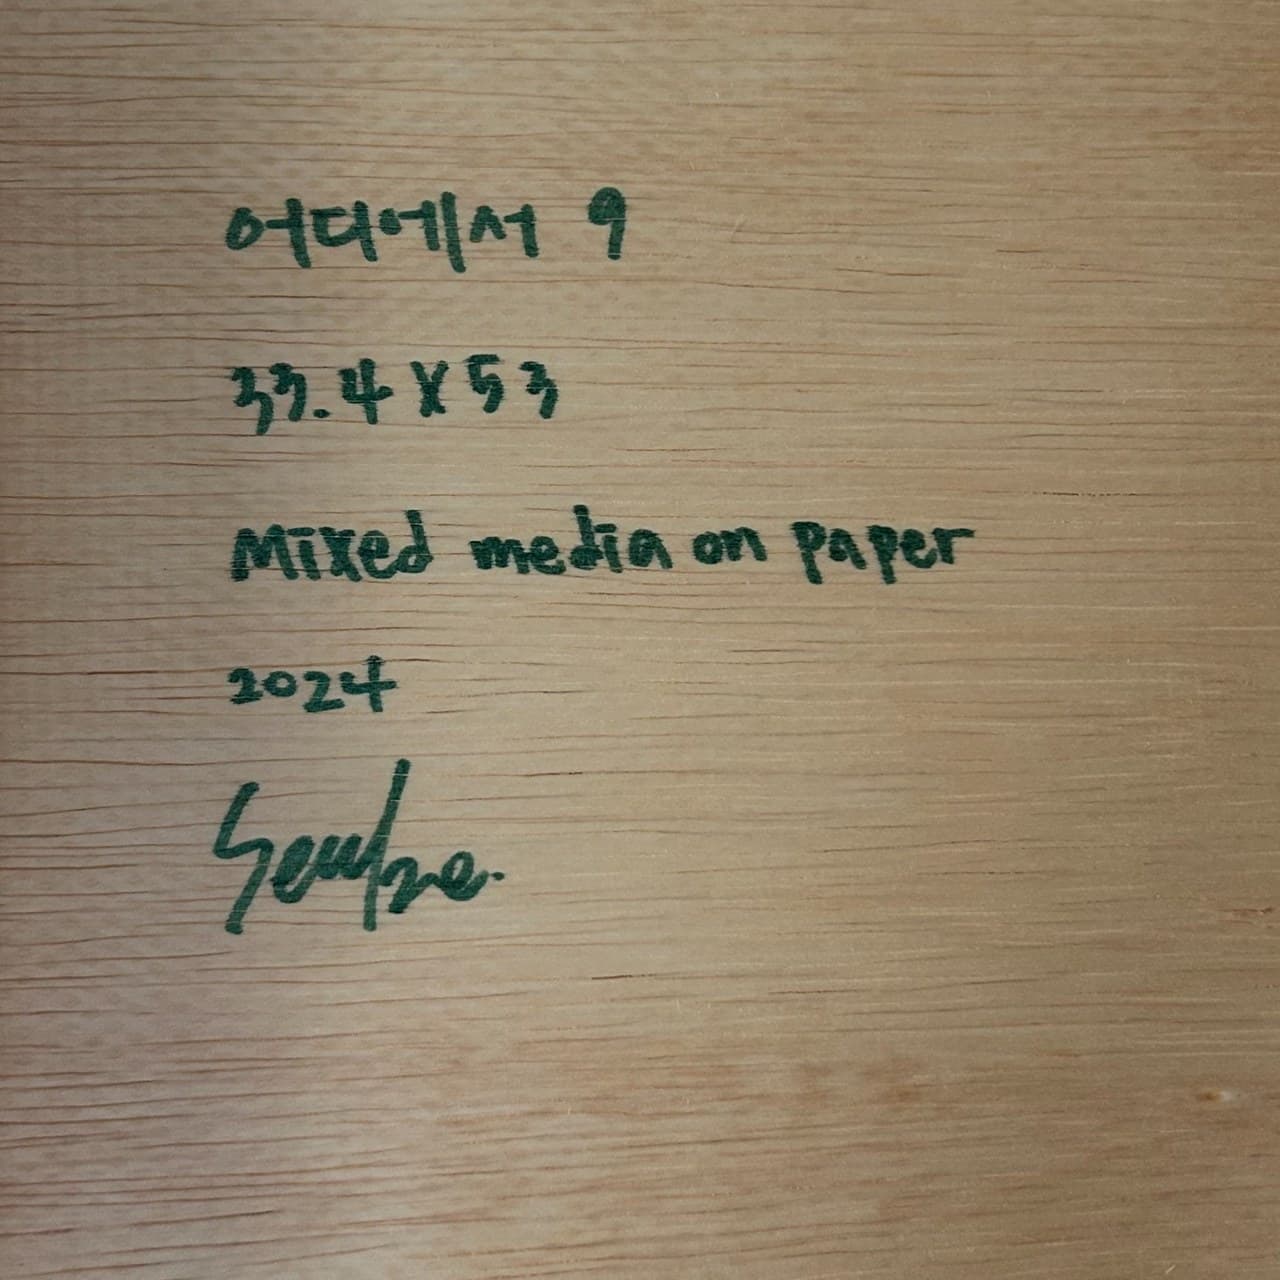 어디에서 9
33.4 X 53
Mixed media on paper
2024